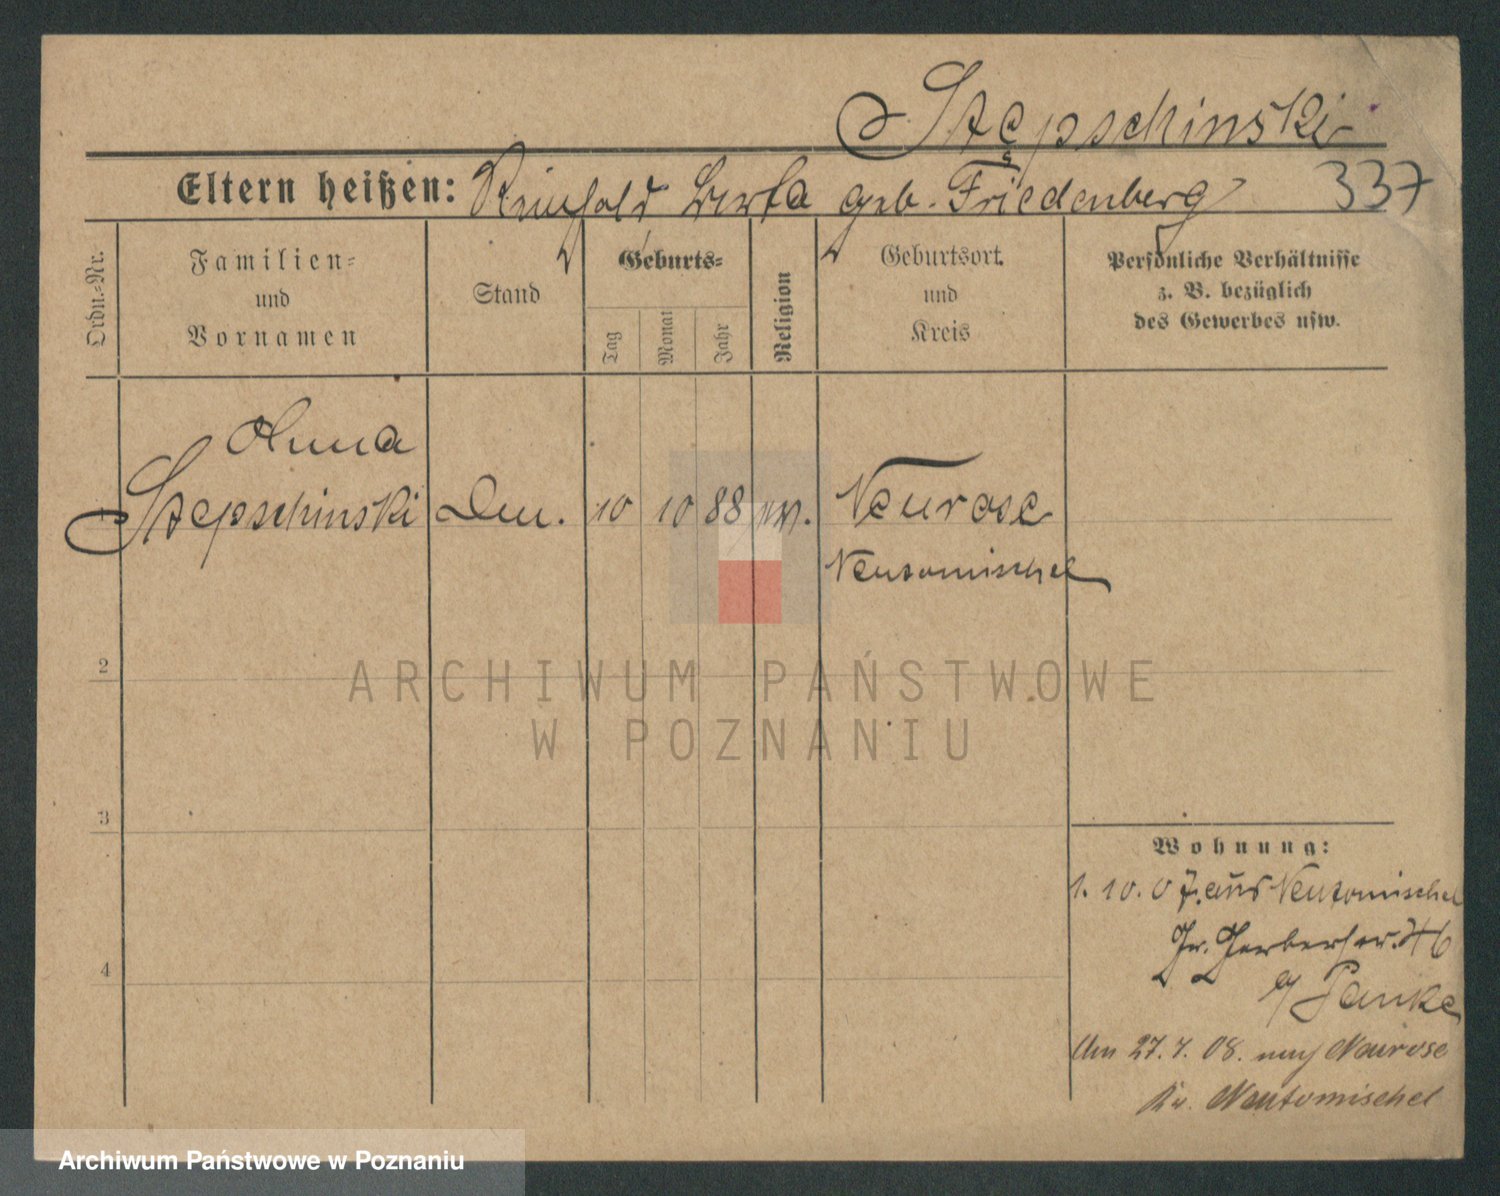 Stępschinski
Eltern heißen: Reinhold Berta geb. Friedenberg 337
Ordn.-Nr.
Familien-
und
Vornamen
Stand
Geburts-
Tag
Monat
Jahr
Religion
Geburtsort
und
Kreis
Persönliche Verhältnisse
z. B. bezüglich
des Gewerbes usw.
Anna
Stepschinski
10 10 88
Neurose
Neutomischel
2
3
4
Wohnung:
1. 10. 07. aus Neutomischel
Gr. Gerberstr. 46
b/ Panke
27. 7. 08. nach Neurose
Kr. Neutomischel
ARCHIWUM PAŃSTWOWE
W POZNANIU
Archiwum Państwowe w Poznaniu